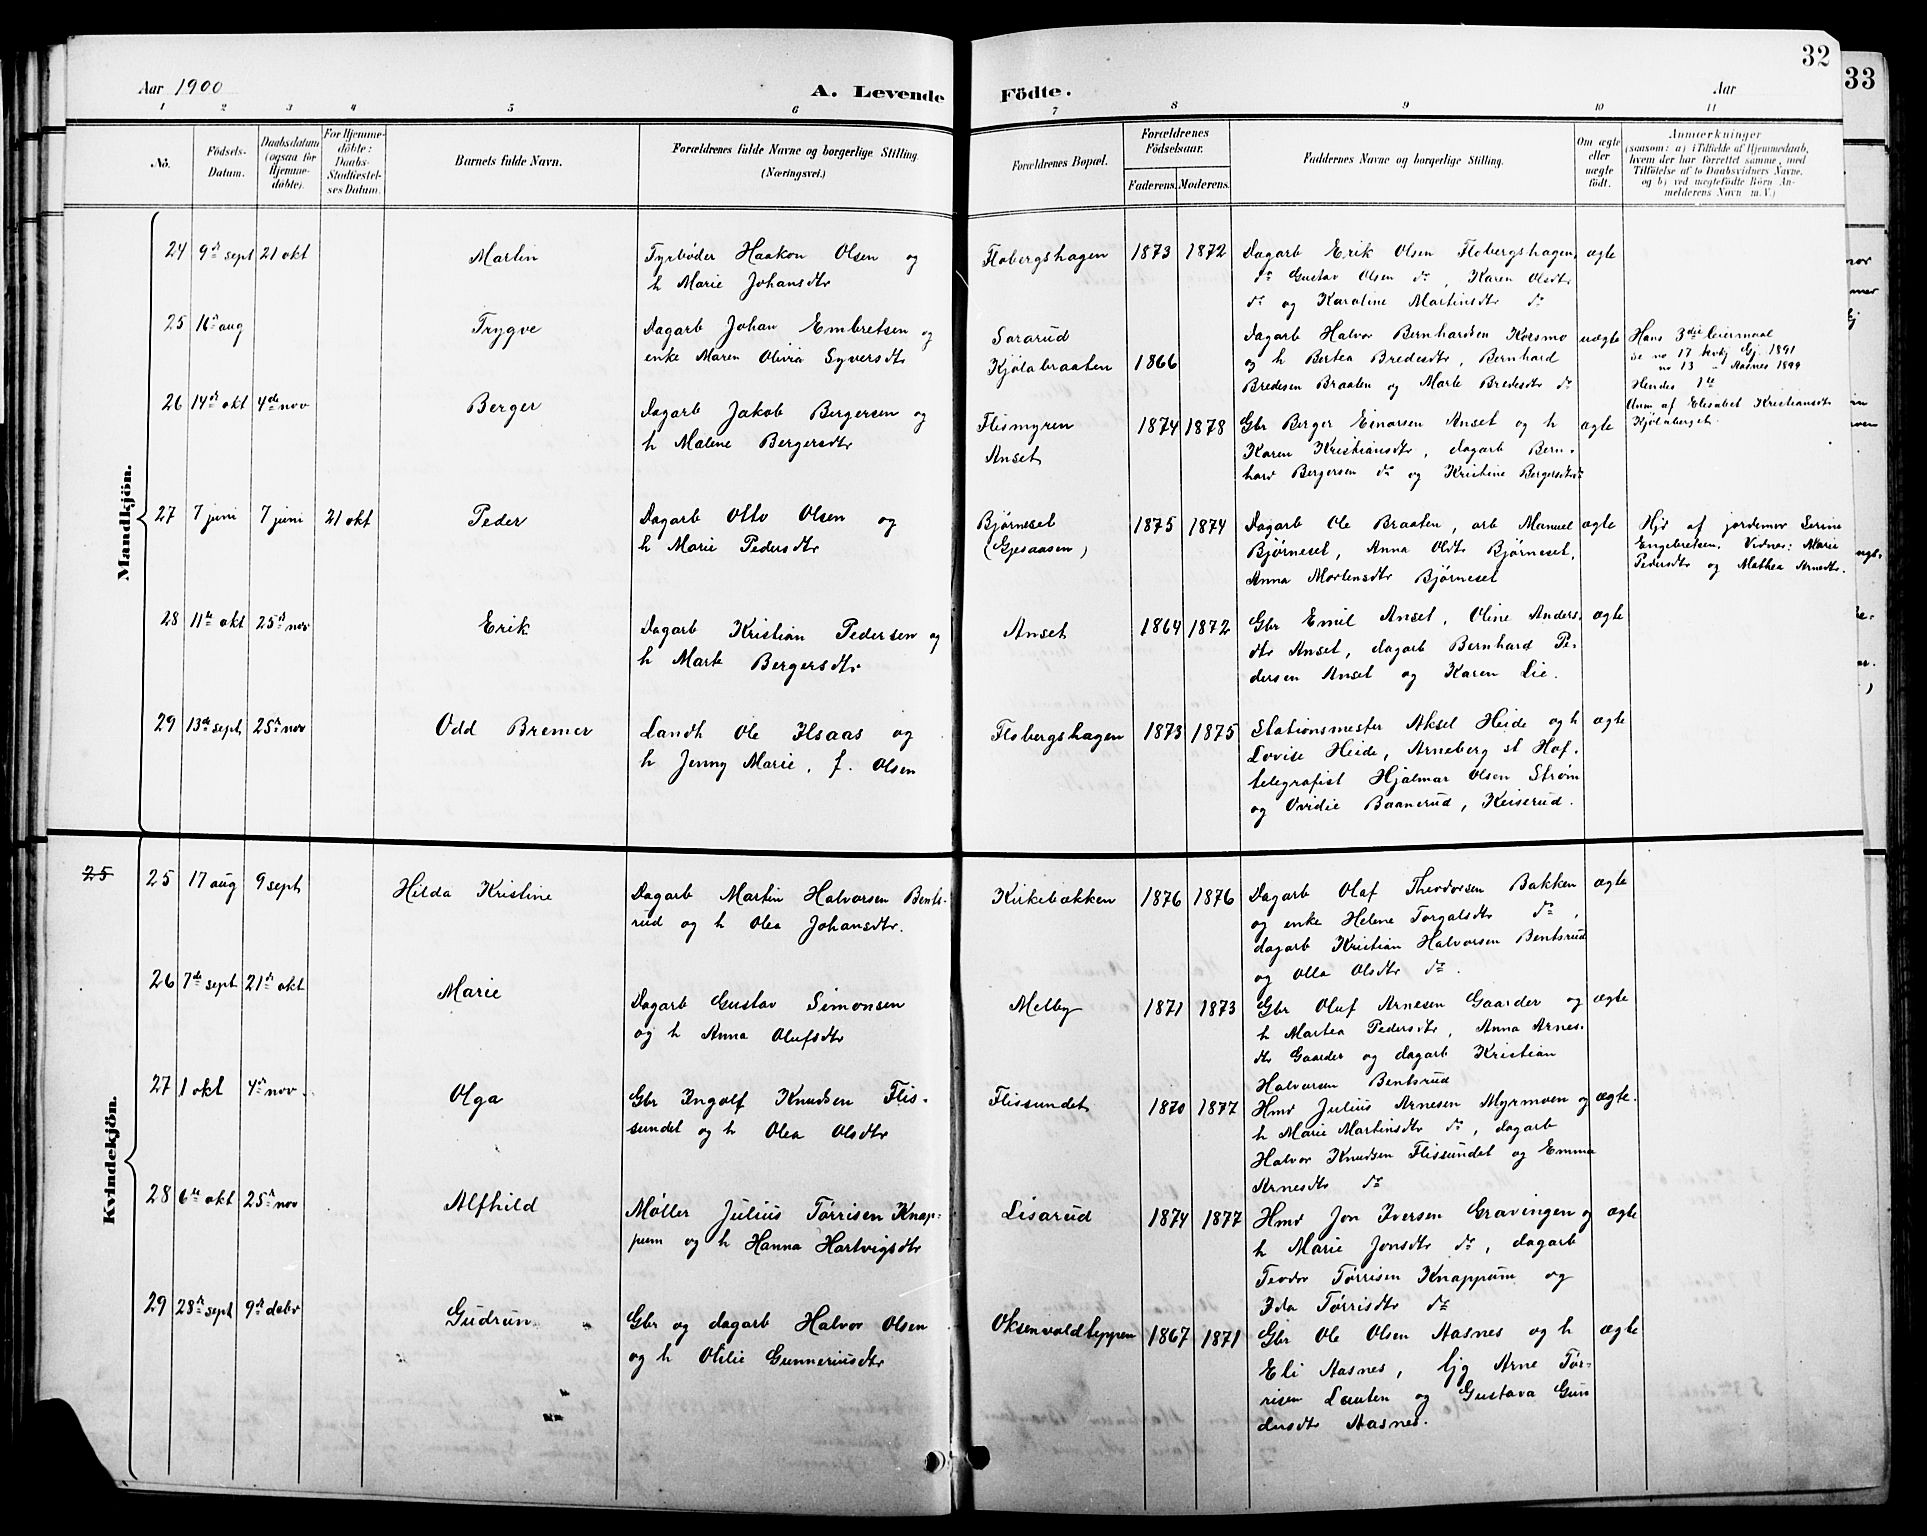 32
33
Aar 1900
A. Levende
Födte.
Aar
1 2 3 4 5 6 7 8 9 10 11
No.
Födsels-
Datum.
Daabsdatum
(ogsaa for
Hjemme-
döbte).
For Hjemme-
döbte:
Daabs-
Stadfæstel-
ses Datum.
Barnets fulde Navn.
Forældrenes fulde Navne og borgerlige Stilling.
(Næringsvei.)
Forældrenes Bopæl.
Forældrenes
Födselsaar.
Faderens. Moderens.
Faddernes Navne og borgerlige Stilling.
Om ægte
eller
uægte
födt.
Anmærkninger
(saasom: a) i Tilfælde af Hjemmedaab,
hvem der har forrettet samme, med
Tilföielse af to Daabsvidners Navne,
og b) ved uægtefödte Börn An-
melderens Navn m. V.)
Mandkjön.
24 9de sept 21 okt
Martin
Fyrbøder Haakon Olsen og
h Marie Johansdtr
Flobergshagen 1873 1872
Dagarb Erik Olsen Flobergshagen,
do Gustav Olsen do, Karen Olsdtr
do og Karoline Martinsdtr do
ægte
25 16de aug
Trygve
Dagarb Johan Embretsen og
enke Maren Olivia Syversdtr
Sorarud
Kjølabraaten 1866
Dagarb Halvor Bernhardsen Korsmo
og h Bertea Bredesdtr, Bernhard
Bredesen Braaten og Marte Bredesdtr do
uægte
Hans 3die leiermaal
se no 17 kvkj Gj. 1891
no 13 " Aasnes 1899
Hendes 1te
Anm af Elisabet Kristiansdtr
Kjølaberget
26 14de okt 4de nov
Berger
Dagarb Jakob Bergersen og
h Malene Bergersdtr
Flismyren
Anset 1874 1878
Gbr Berger Einarsen Anset og h
Karen Kristiansdtr, dagarb Bern-
hard Bergersen do og Kristine Bergersdtr do
ægte
27 7 juni 7 juni 21 okt
Peder
Dagarb Otto Olsen og
h Marie Pedersdtr
Bjørneset
(Gjesaasen) 1875 1874
Dagarb Ole Braaten, arb Manuel
Bjørneset, Anna Oldtr Bjørneset,
Anna Mortensdtr Bjørneset
ægte
Hjd af jordemor Serine
Engebretsen. Vidner: Marie
Pedersdtr og Mathea Arnesdtr.
28 11te okt 25de nov
Erik
Dagarb Kristian Pedersen og
h Marte Bergersdtr
Anset 1864 1872
Gbr Emil Anset, Oline Anders-
dtr Anset, dagarb Bernhard Pe-
dersen Anset og Karen Lie.
ægte
29 13de sept 25de nov
Odd Bremer
Landh Ole Ilsaas og
h Jenny Marie, f. Olsen
Flobergshagen 1873 1875
Stationsmester Aksel Heide og h
Lovise Heide, Arneberg st Hof,
telegrafist Hjalmar Olsen Strøm
og Ovidie Baanerud, Keiserud.
ægte
Kvindekjön.
25 25 17 aug 9 sept
Hilda Kristine
Dagarb Martin Halvorsen Bents-
rud og h Olea Johansdtr.
Kirkebækken 1876 1876
Dagarb Olaf Theodorsen Bakken
og enke Helene Torgalsdtr do,
dagarb Kristian Halvorsen Bentsrud
og Olla Olsdtr do.
ægte
26 7de sept 21de okt
Marie
Dagarb Gustav Simonsen
og h Anna Olufsdtr
Melby 1871 1873
Gbr Oluf Arnesen Gaarder og
h Martea Pedersdtr, Anna Arnes-
dtr Gaarder og dagarb Kristian
Halvorsen Bentsrud
ægte
27 1 okt 4de nov.
Olga
Gbr Ingolf Knudsen Flis-
sundet og h Olea Olsdtr
Flissundet 1870 1877
Hmd Julius Arnesen Myrmoen og
h Marie Martinsdtr do, dagarb
Halvor Knudsen Flissundet og Emma
Arnesdtr do
ægte.
28 6te okt 25de nov
Alfhild
Møller Julius Tørrisen Knap-
pum og h Hanna Hartvigsdtr
Lisarud 1874 1877
Hmd Jon Iversen Gravingen og
h Marie Jonsdtr do, dagarb
Teodor Tørrisen Knappum og
Ida Tørrisdtr do
ægte
29 28de sept 9de debr
Gudrun
Gbr og dagarb Halvor Olsen
og h Otilie Gunneriusdtr
Oksenvaldteppen 1867 1871
Gbr Ole Olsen Aasnes og h
Eli Aasnes, Gjg Arne Tør-
risen Lauten og Gustava Gun
dersdtr Aasnes.
ægte